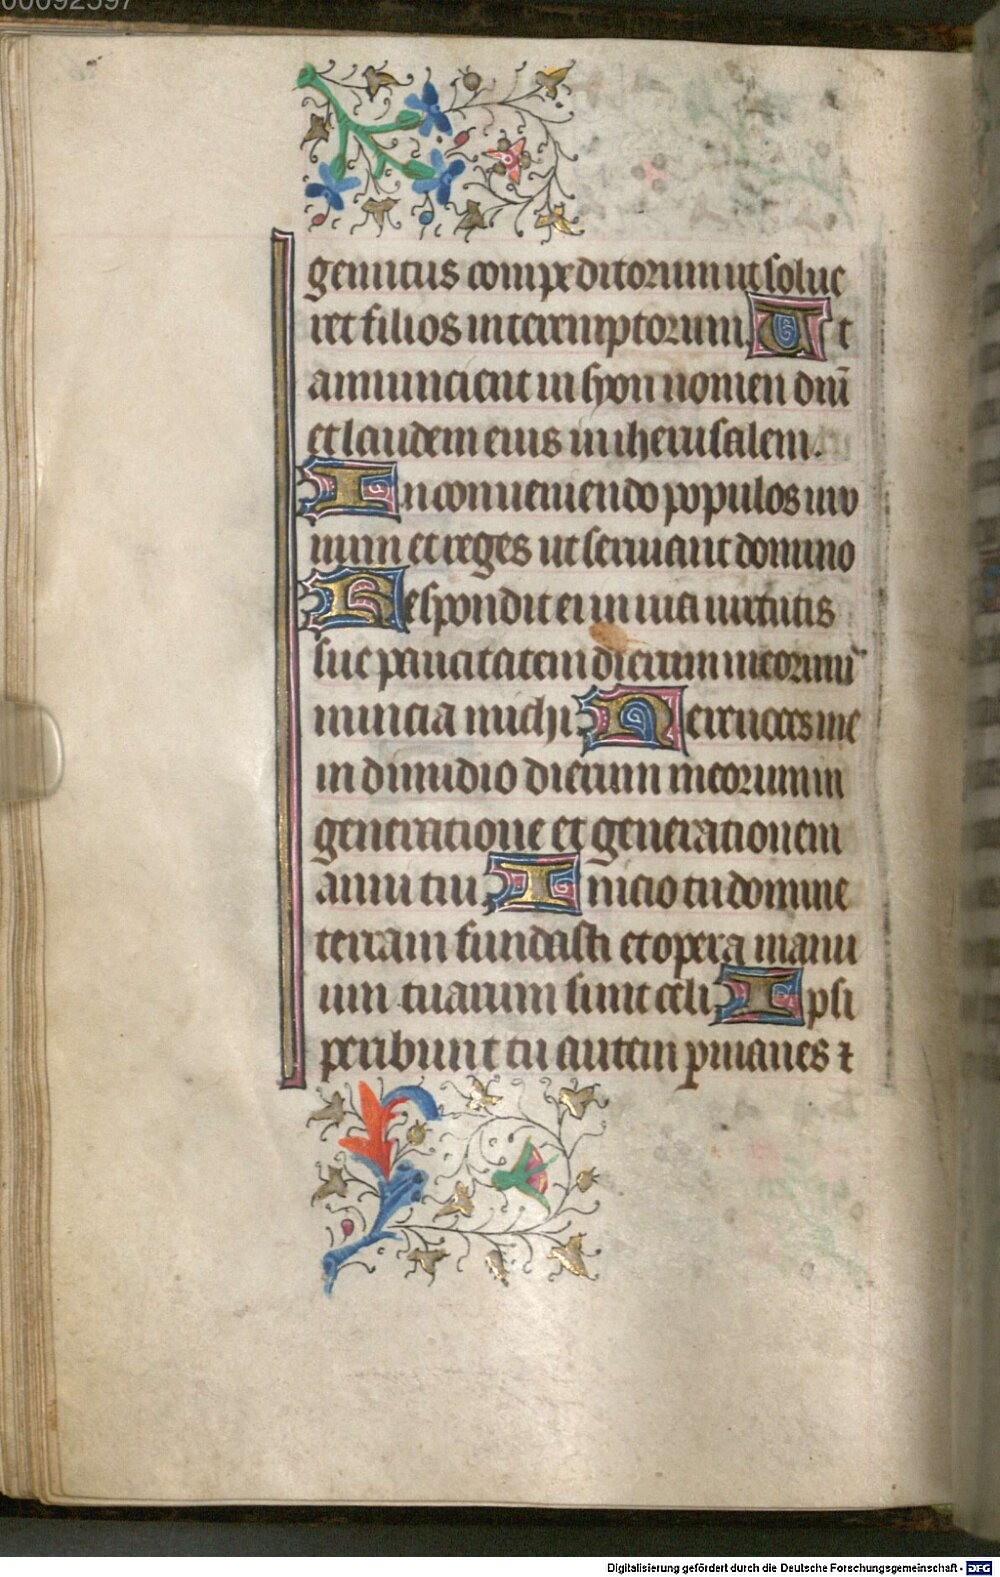 00092397
gemitus compeditorum ut solue
ret filios interemptorum. Ut
annuncient in syon nomen dnī
et laudem eius in iherusalem.
In conueniendo populos in v
num et reges ut seruiant domino
Respondit ei in uia uirtutis
sue paucitatem dierum meorum
nuncia michi. Ne reuoces me
in dimidio dierum meorum in
generatione et generationem
anni tui. Inicio tu domine
terram fundasti et opera manu
um tuarum sunt celi. Ipsi
peribunt tu autem pmanes ⁊
Digitalisierung gefördert durch die Deutsche Forschungsgemeinschaft - DFG